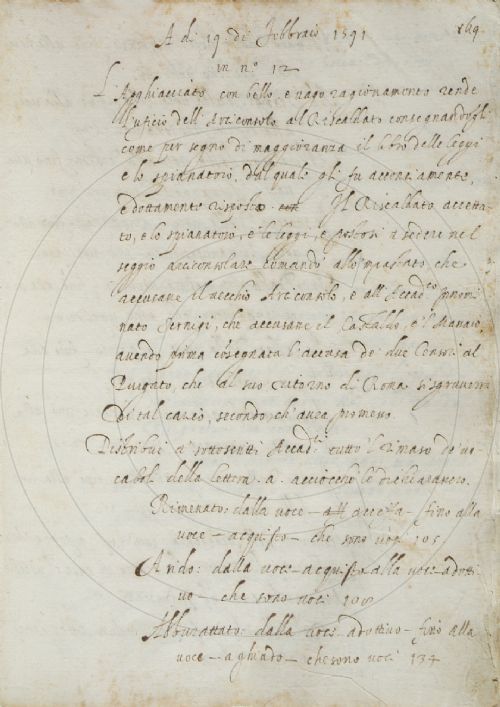 A di 19 di Febbraio 1591
169
in nº 12
L'Agghiacciato con bello, e vago ragionamento rende
l'uficio dell'Arciconsolo al Riscaldato consegnandogli
come per segno di maggioranza il libro delle leggi
e lo spianatoio, dal quale gli fu accenciamente,
e dottamente risposto. Il Riscaldato accetta-
to, e lo spianatoio, e le leggi, e postosi a sedere nel
seggio arciconsolare comandò allo 'mpastato, che
accusasse il vecchio Arciconsolo, e all'Accad.co innomi
nato Sernigi, che accusasse il Castaldo, e 'l Massaio,
avendo prima consegnata l'accusa de' due Censori al
Purgato, che al suo ritorno di Roma si sgraverrà
di tal carico, secondo, ch'avea promesso.
Distribuì a' sottoscritti Accad.ci tutto 'l rimaso de' vo-
cabol. della lettera .a. acciocchè le dichiarassero.
Rimenato: dalla voce – accetta – fino alla
voce – acquisto – che sono voci 105
Arido: dalla voce – acquisto alla voce adotti
vo – che sono voci
Abburattato: dalla voce adottivo – fino alla
voce – aghiado – che sono voci 134